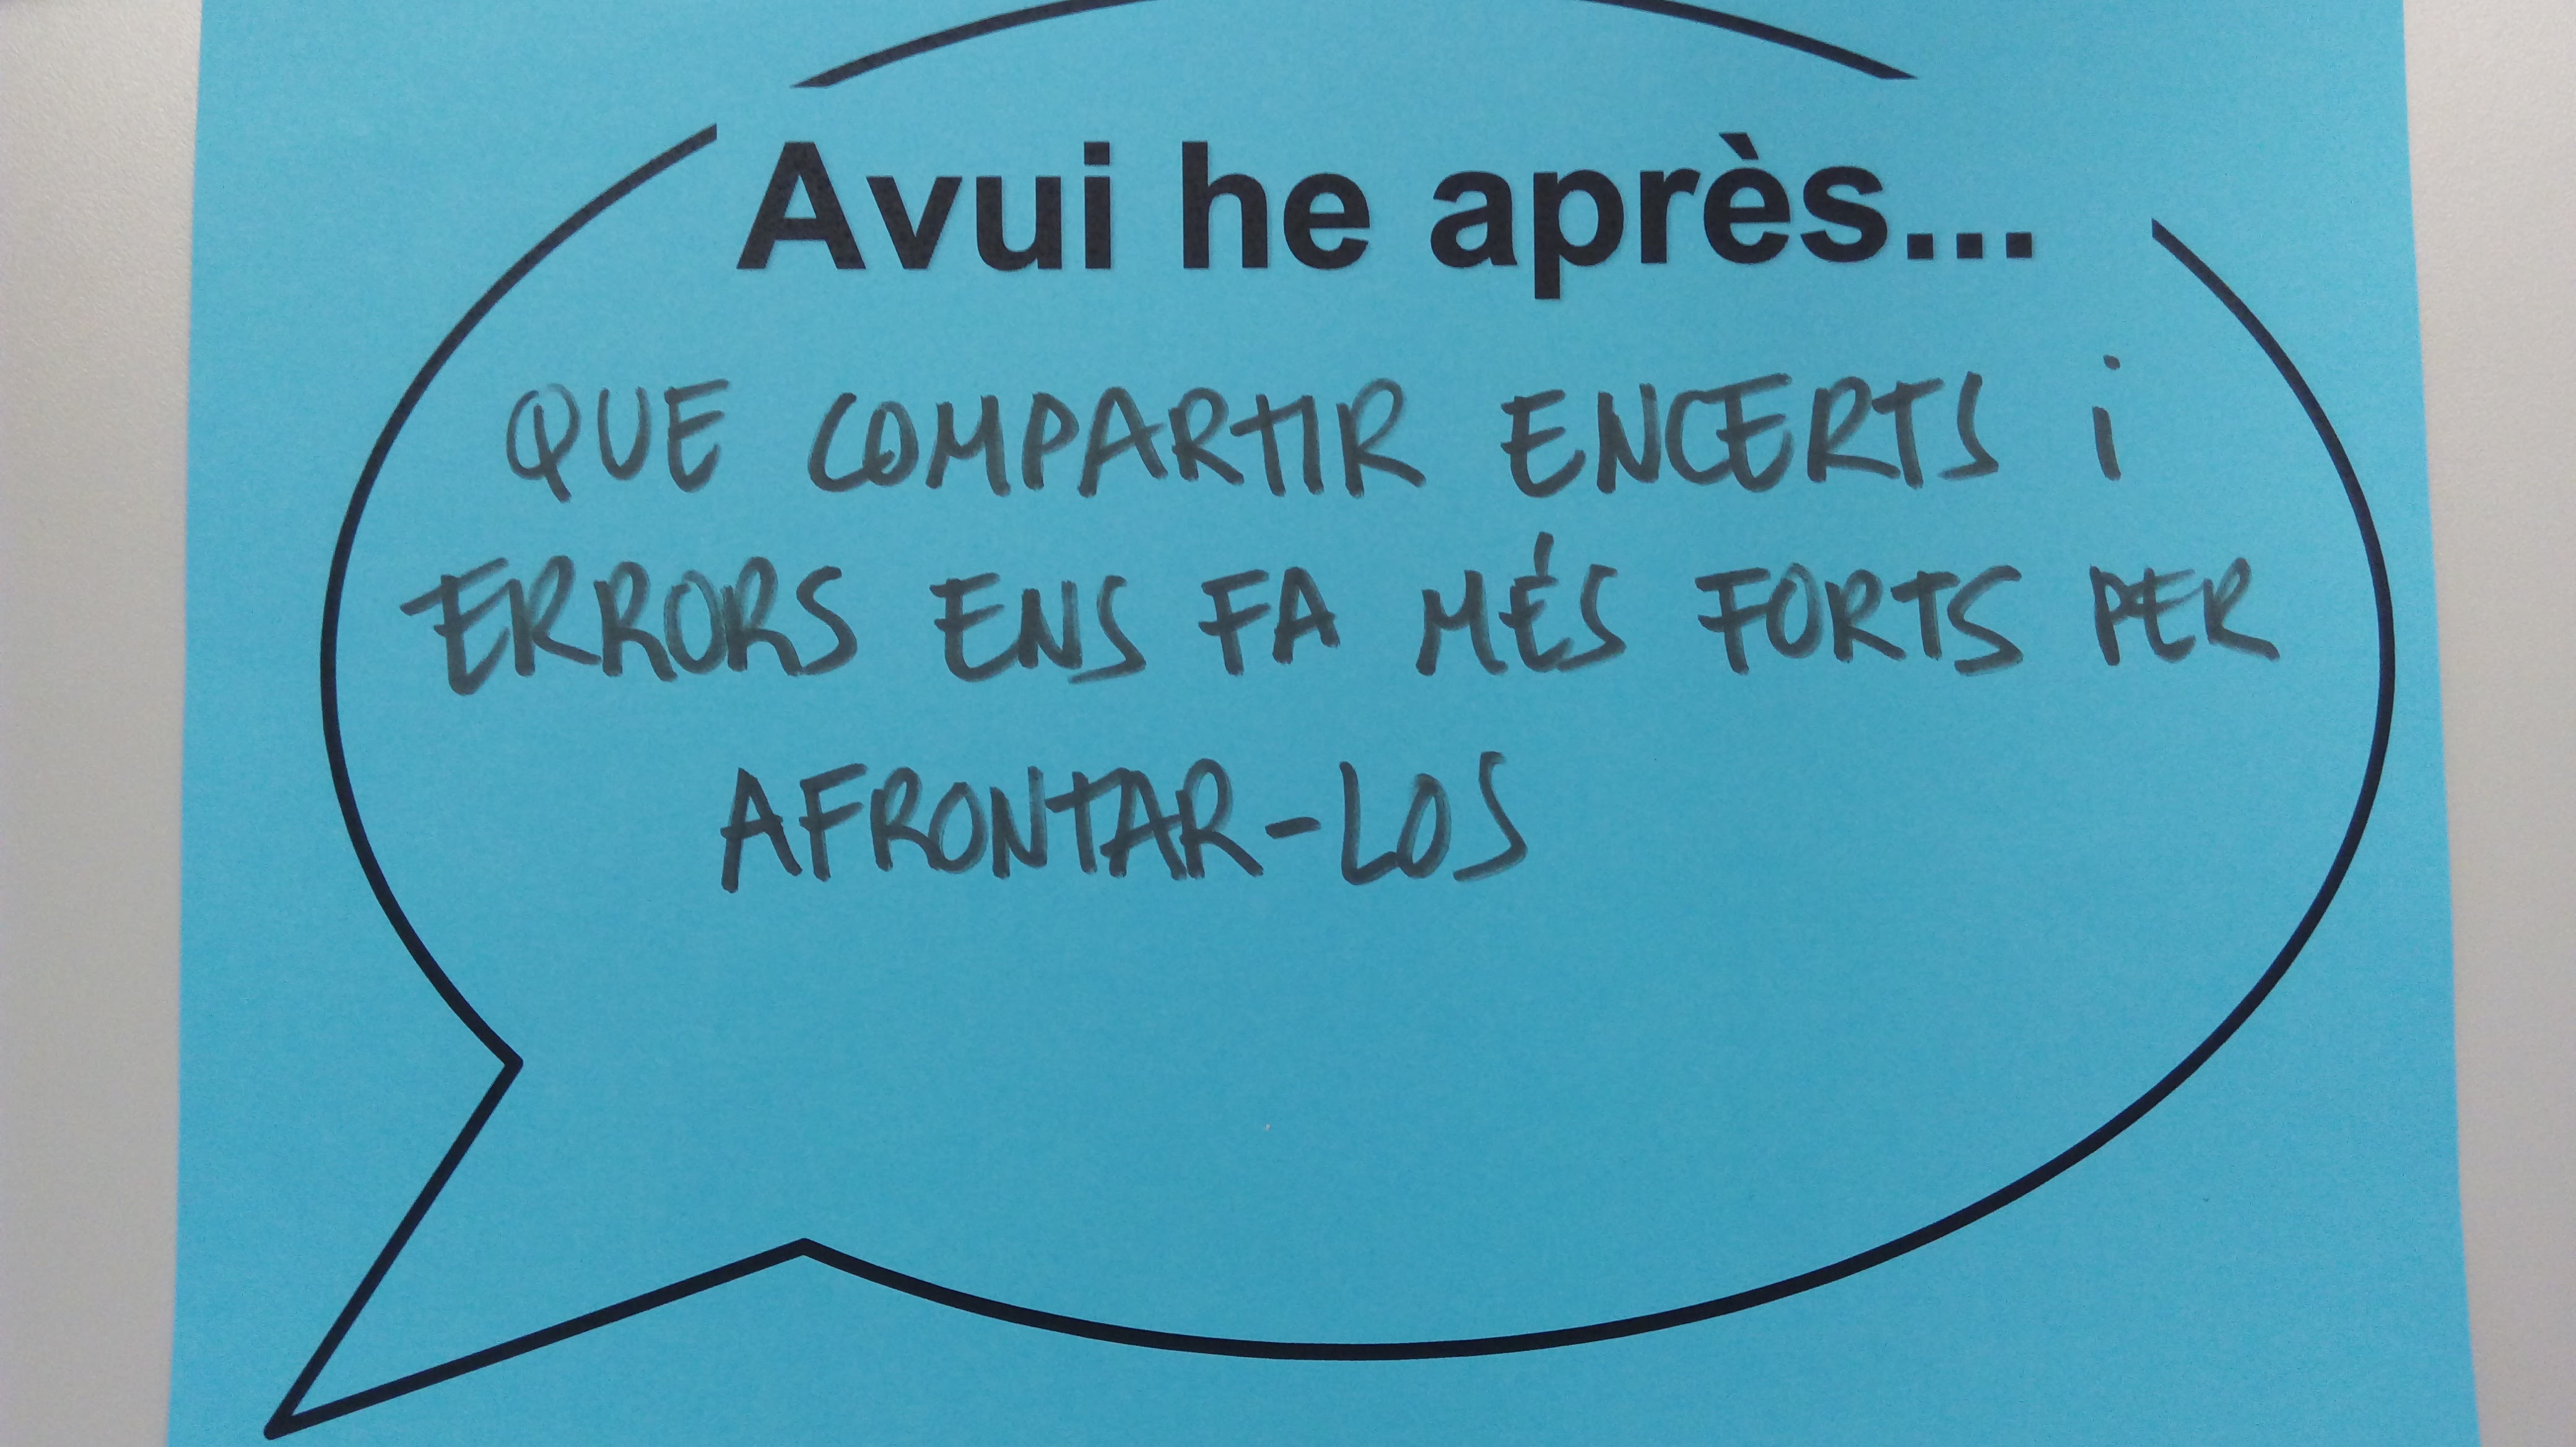 Avui he après...
QUE COMPARTIR ENCERTS i
ERRORS ENS FA MÉS FORTS PER
AFRONTAR-LOS